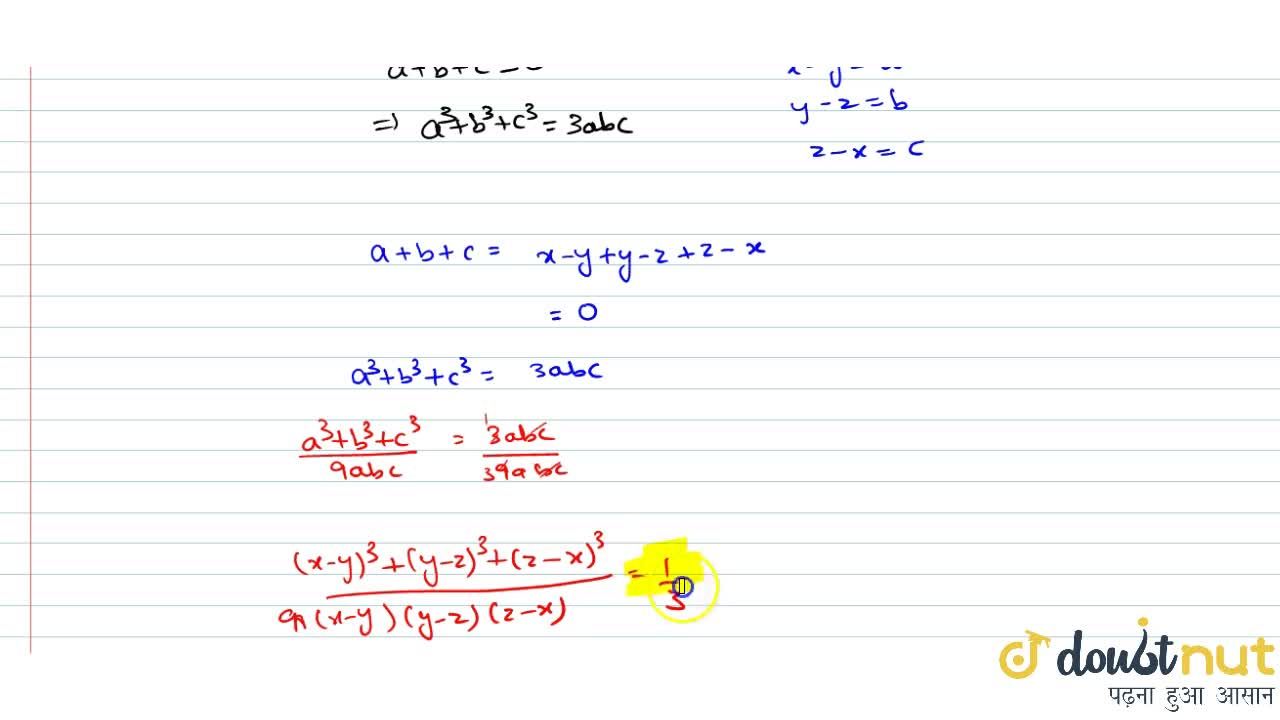 a+b+c=0
x-y=a
y-z=b
⇒ a³+b³+c³=3abc
z-x=c
a+b+c= x-y+y-z+z-x
=0
a³+b³+c³= 3abc
a³+b³+c³/9abc = 3abc/9abc 1 3
(x-y)³+(y-z)³+(z-x)³/9(x-y)(y-z)(z-x) = 1/3
doubtnut
पढ़ना हुआ आसान